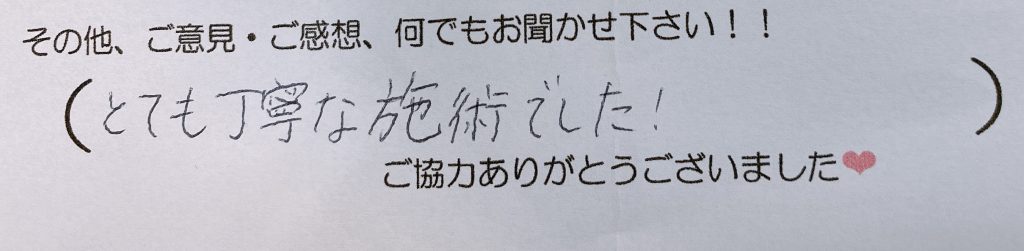 その他、ご意見・ご感想、何でもお聞かせ下さい！！
(とても丁寧な施術でした!)
ご協力ありがとうございました❤